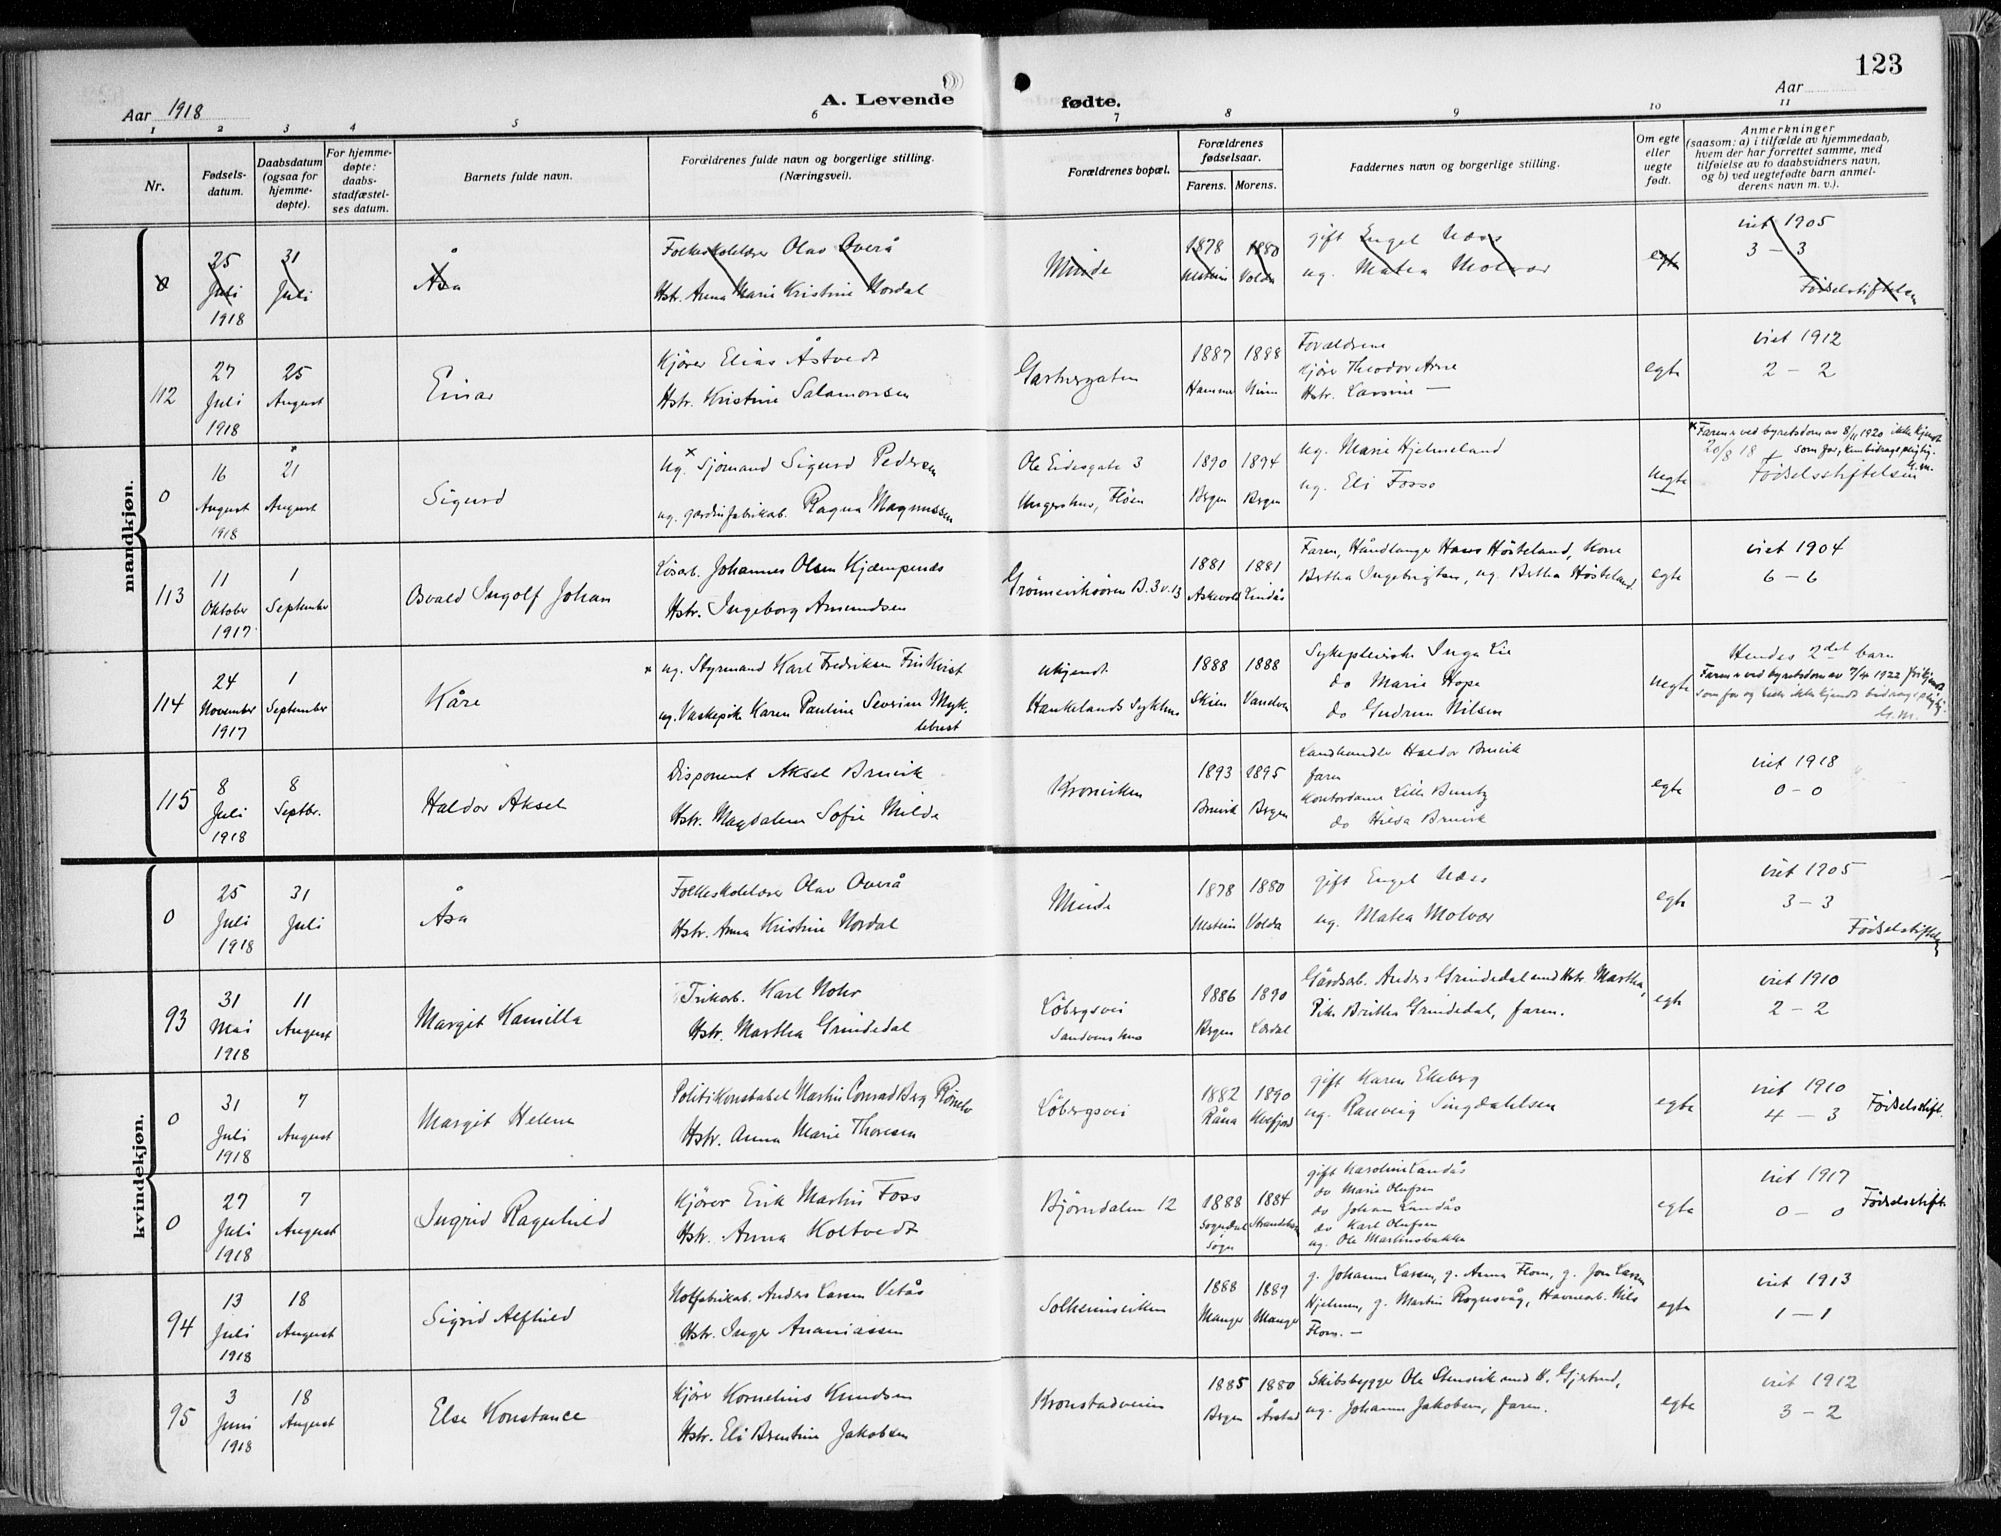 123
Aar 1918
A. Levende
fødte.
Aar
1 2 3 4 5 6 7 8 9 10 11
Nr.
Fødsels-
datum.
Daabsdatum
(ogsaa for
hjemme-
døpte).
For hjemme-
døpte:
daabs-
stadfæstel-
ses datum.
Barnets fulde navn.
Forældrenes fulde navn og borgerlige stilling.
(Næringsvei).
Forældrenes bopæl.
Forældrenes
fødselsaar.
Farens. Morens.
Faddernes navn og borgerlige stilling.
Om egte
eller
uegte
født.
Anmerkninger
(saasom: a) i tilfælde av hjemmedaab,
hvem der har forrettet samme, med
tilføielse av to daabsvidners navn,
og b) ved uegtefødte barn anmel-
derens navn m. v.).
mandkjøn.
0
25
Juli
1918
31
Juli
Åsa
Folkeskolelærer Olav Overå
Hstr. Anna Marie Kristine Nordal
Minde
1878
Ulstein
1880
Volda
gift Engel Næss
ug. Matea Molvær
egte
viet 1905
3 – 3
Fødselsstiftelsen
112
27
Juli
1918
25
August
Einar
Kjører Elias Åstvedt
Hstr. Kristine Salamonsen
Gartnergaten
1887
Hammer
1888
Forældrene
Kjører Theodor Arne
Hstr. Larsine —
egte
viet 1912
2 – 2
0
16
August
1918
21
August
Sigurd
Ug. Sjømand Sigurd Pedersen
ug. gardinfabrikab. Ragna Magnussen
Ole Eidesgate 3
Ungershus, Fløen
1890
Bergen
1894
Bergen
ug. Marie Hjelmeland
ug. Eli Fosse
uegte
Faren ved byretsdom av 8/11 1920 ikke kjendt
20/8 18 som far, kun bidragspligtig.
G.M.
Fødselsstiftelsen
113
11
Oktober
1917
1
September
Osvald Ingolf Johan
Løsarb. Johannes Olsen Kjæmpenæs
Hstr. Ingeborg Amundsen
Grønnevikøren B. 3 v. 13
1881
Askevold
1881
Lindås
Faren, Håndlanger Hans Høsteland, Kone
Bertha Ingebrigtsen, ug. Bertha Høsteland
egte
viet 1904
6 – 6
114
24
November
1917
1
September
Kåre
ug. Styrmand Karl Fredriksen Friskvist
ug. Vaskepik. Karen Pauline Severine Myk-
lebust
ukjendt
Haukelands Sykhus
1888
Skien
1888
Vanelven
Sykepleierske Inga Lie
do Marie Hope
do Gudrun Nilsen
uegte
Hendes 2det barn
Faren ved byretsdom av 7/4 1922
G.M.
115
8
Juli
1918
8
Septbr.
Haldor Aksel
Disponent Aksel Bruvik
Hstr. Magdalene Sofie Milde
Kronviken
1893
Bruvik
1895
Bergen
Landhandler Haldor Bruvik
faren
Kontordame Lilli Buntz
do Hilda Bruvik
egte
viet 1918
0 – 0
kvindekjøn.
0
25
Juli
1918
31
Juli
Åsa
Folkeskolelærer Olav Overå
Hstr. Anna Kristine Nordal
Minde
1878
Ulstein
1880
Volda
gift Engel Næss
ug. Matea Molvær
egte
viet 1905
3 – 3
Fødselsstiftelsen
93
31
Mai
1918
11
August
Margit Kamilla
Trikarb. Karl Nohr
Hstr. Martha Grindedal
Løbergsvei
Sandvenshus
1886
Bergen
1890
Lærdal
Gårdsarb. Anders Grindedal and Hstr. Martha,
Pike Britha Grindedal, faren.
egte
viet 1910
2 – 2
0
31
Juli
1918
7
August
Margit Helene
Politikonstabel Martin Conrad Berg
Hstr. Anna Marie Thoresen
Løbergsvei
1882
Råna
1890
gift Karen Ekeberg
ug. Ranveig Singdahlsen
egte
viet 1910
4 – 3
Fødselsstift.
0
27
Juli
1918
7
August
Ingrid Ragnhild
Kjører Erik Martin Foss
Hstr. Anna Holtvedt
Bjørndalen 12
1888
Sogndal
Sogn
1884
gift Karoline Landås
do Marie Olufsen
do Johan Landås
do Karl Olufsen
ug. Ole Martinsbakke
egte
viet 1917
0 – 0
Fødselsstift.
94
13
Juli
1918
18
August
Sigrid Alfhild
Notfabrikab. Anders Larsen Vetås
Hstr. Inger Ananiassen
Solheimsviken
1888
Manger
1889
Manger
g. Johanne Larsen, g. Anna Flom, g. Jon Larsen
Hjelmen, g. Martin Rognsvåg, Havnearb. Nils
Flom. —
egte
viet 1913
1 – 1
95
3
Juni
1918
18
August
Else Konstance
Kjører Kornelius Knudsen
Hstr. Eli Berntine Jakobsen
Kronstadveien
1885
Bergen
1880
Årstad
Skibsbygger Ole Stensvik med H. Gjertrud,
ug. Johanne Jakobsen, faren.
egte
viet 1912
3 – 2